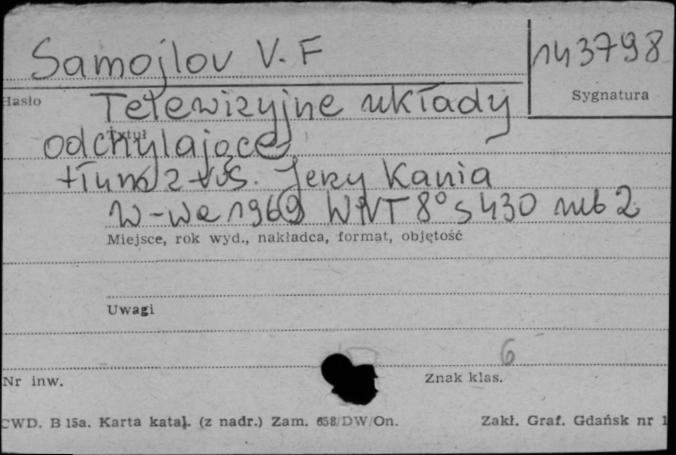 Samojlov V. F
143798
Hasło
Sygnatura
Telewizyjne układy
Tytuł
odchylające
tłum z ros. Jerzy Kania
W-wa 1969 WNT 8° s 430 nlb 2
Miejsce, rok wyd., nakładca, format, objętość
Uwagi
6
Nr inw.
Znak klas.
CWD. B 15a. Karta katal. (z nadr.) Zam. 658/DW/On.
Zakł. Graf. Gdańsk nr 1